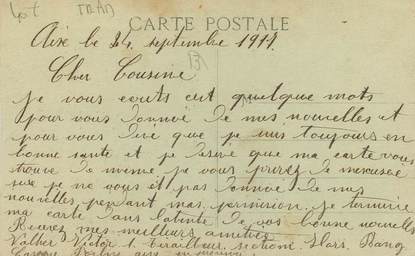 Lot TRAD
CARTE POSTALE
Aixe le 24 septembre 1917
13
Cher Cousine
je vous ecrits cest quelque mots
pour vous donné de mes nouvelles et
pour vous dire que je suis toujours en
bonne santé et je desire que ma carte vous
trouve de meme je vous prirez de mexcusé
sie je ne vous et pas donnée de mes
nouvelles pendant mas permision. je termine
ma carte dans latente de vos bonne nouvelles
Recevez mes meilleurs amitiés
Victor 1 tirailleur section Hors Rang